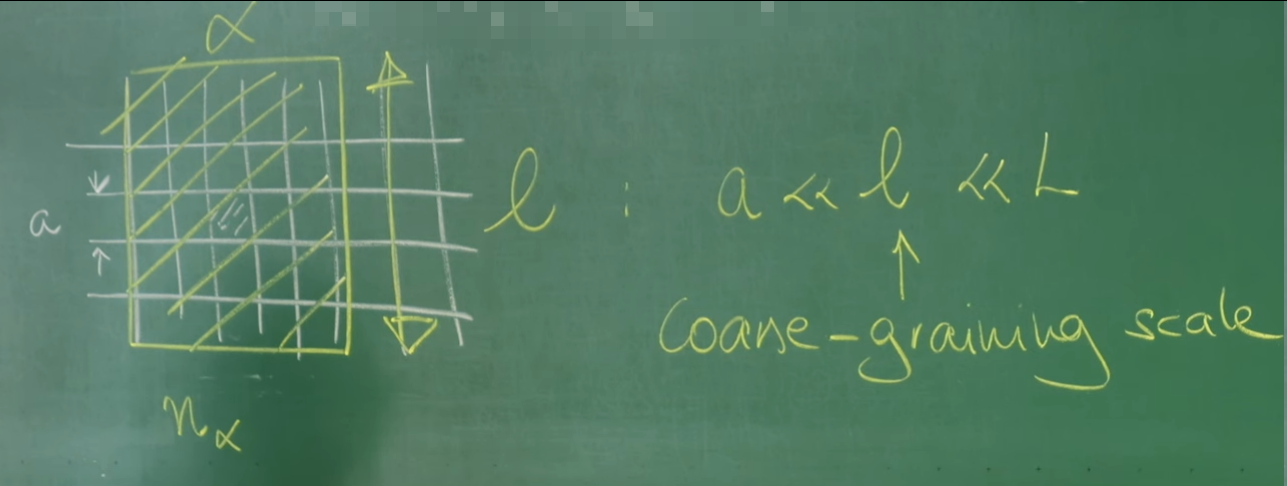 α
a
l : a << l << L
coarse-graining scale
n_α